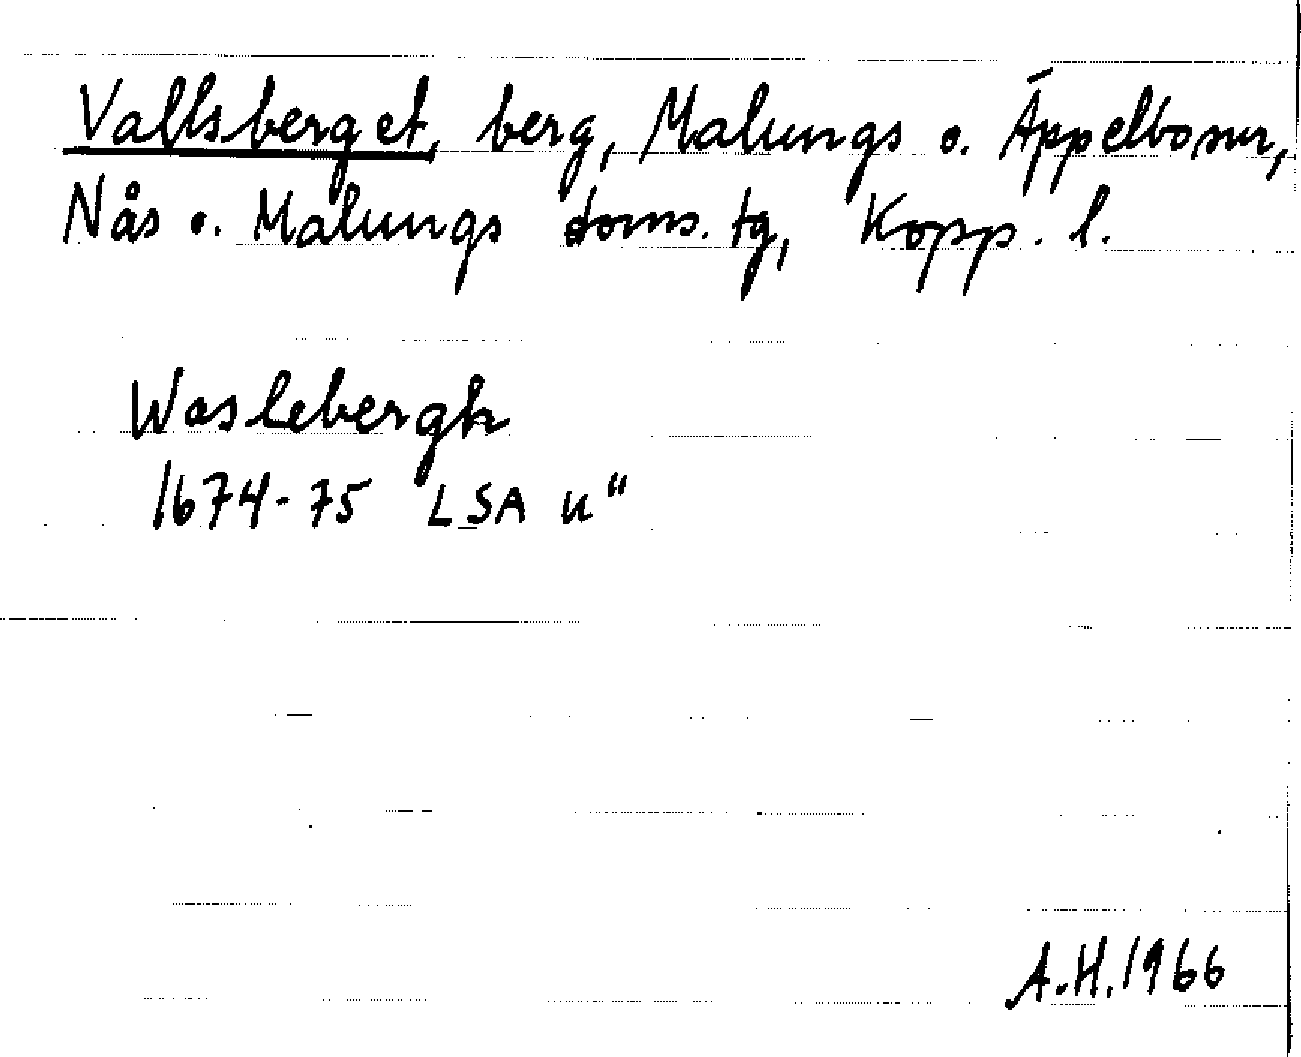 Vallsberget, berg, Malungs o. Äppelbo snr,
Nås o. Malungs doms. tg, Kopp. l.
Waslebergh
1674-75 LSA u"
A.H. 1966